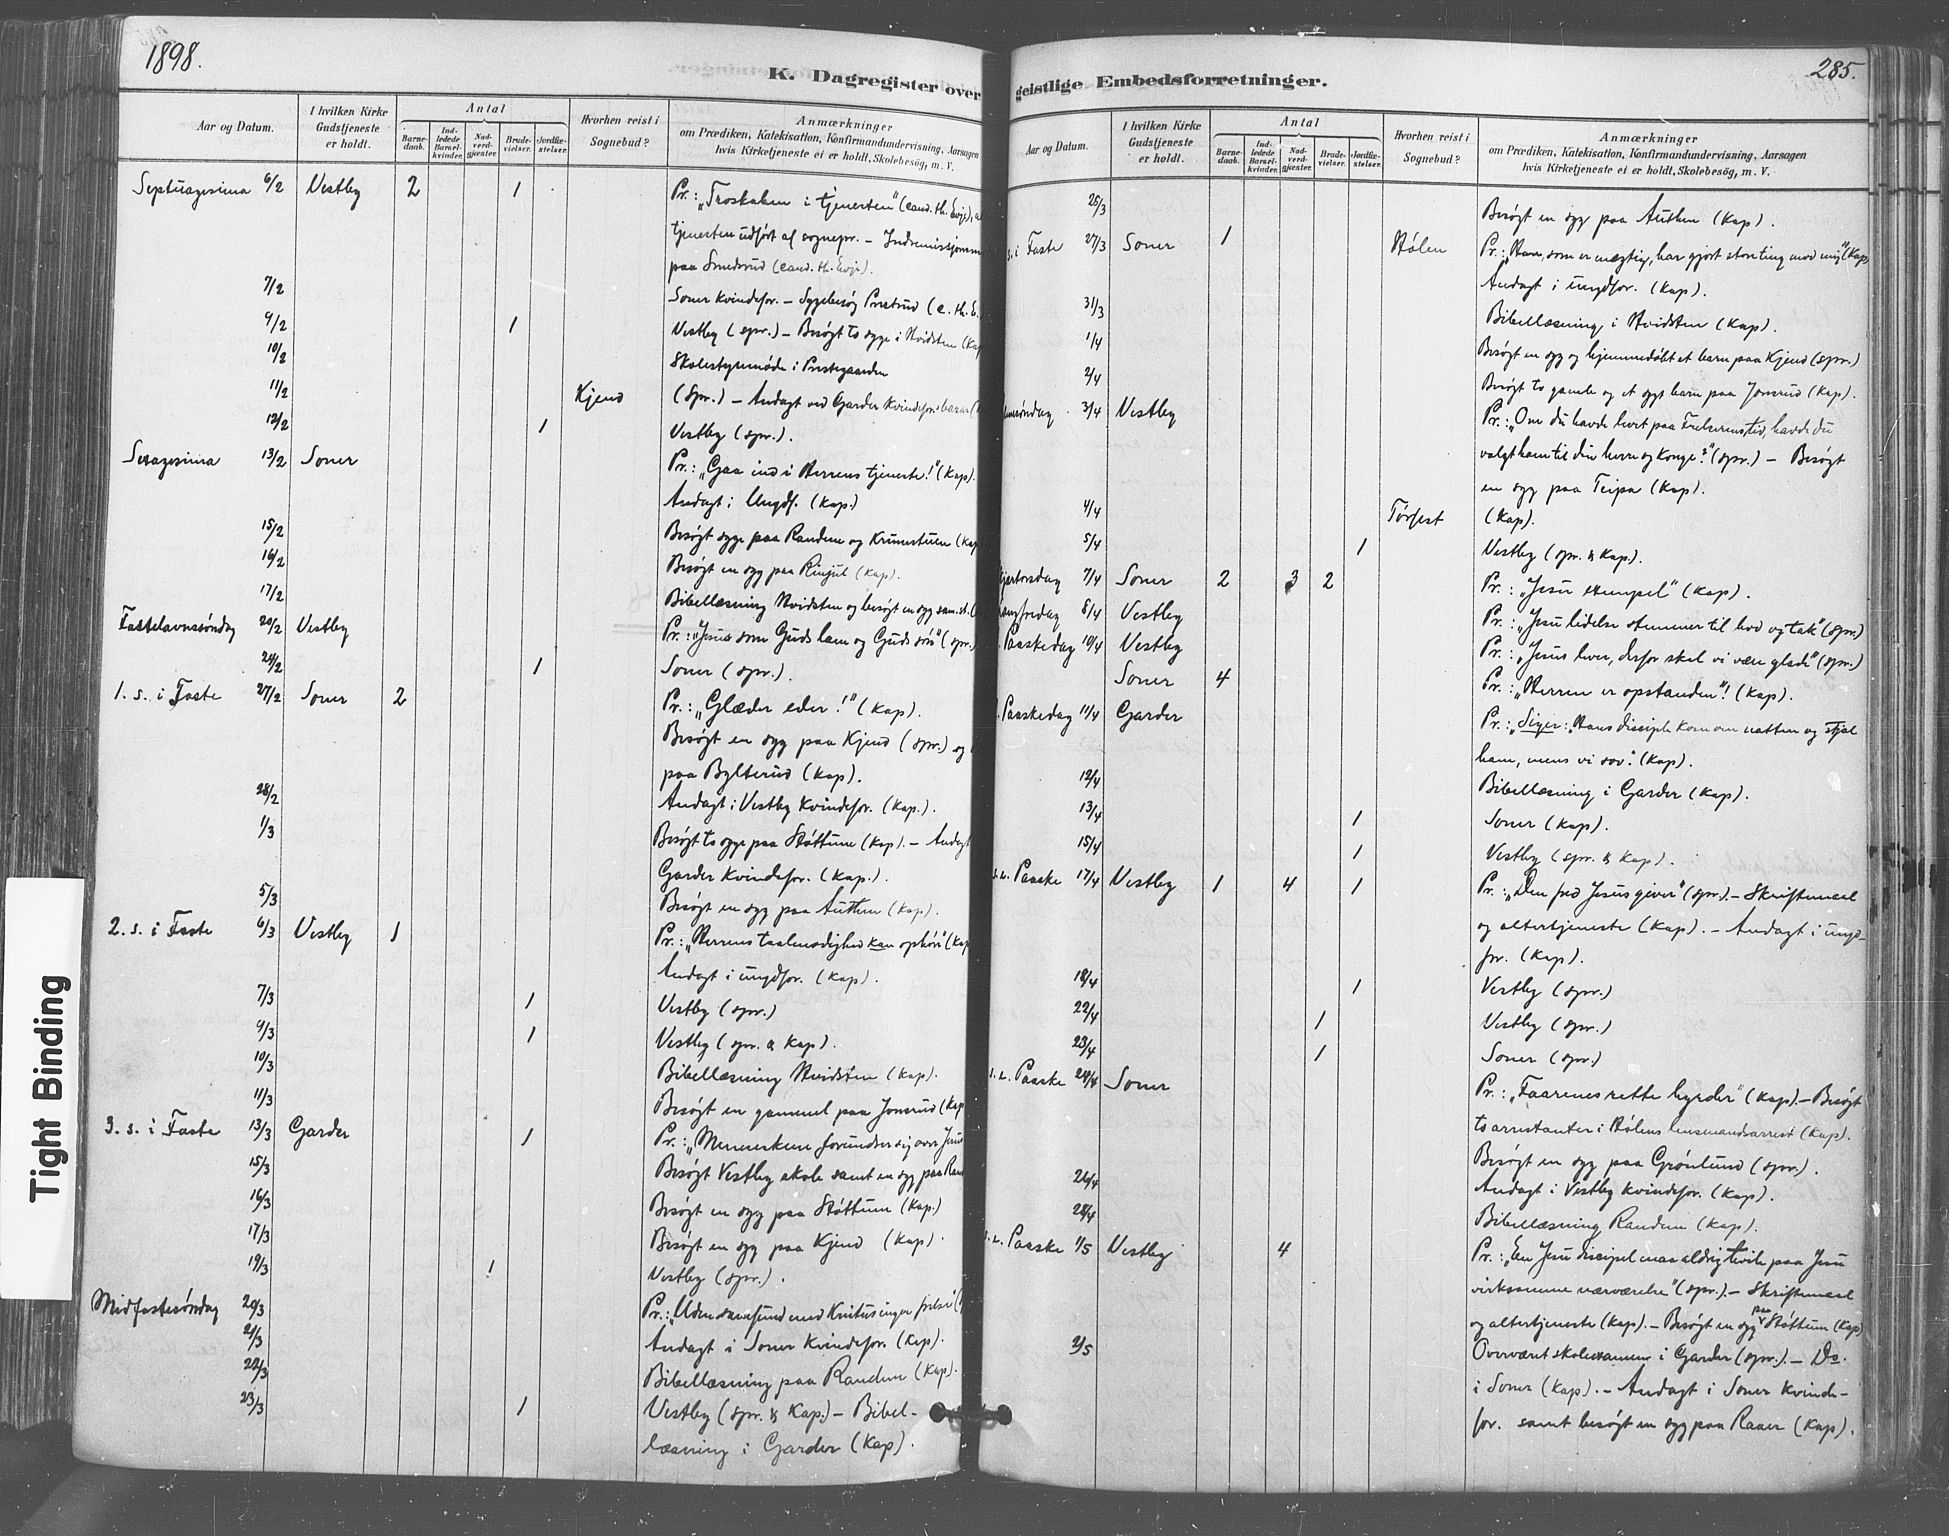 1898.
K. Dagregister over
Aar og Datum.
I hvilken Kirke Gudstjeneste er holdt.
Antal
Barnedaab.
Indledede Barselkvinder.
Nadverdgjester.
Brudevielser.
Jordfæstelser.
Hvorhen reist i Sognebud?
Anmærkninger
om Prædiken, Katekisation, Konfirmandundervisning, Aarsagen
hvis Kirketjeneste ei er holdt, Skolebesøg, m. V.
Septuagesima 6/2 Vestby 2 1 Pr.: „Troskaben i tjenesten" (cand. th. Evje),
tjenesten udført af sognepr. – Indremissionsm
paa Smedsrud (cand. th. Evje).
7/2 Soner Kvindefor. – Sygebesøg Prestrud (c. th. E.
9/2 1 Vestby (spr.) – Besøgt to syge i Hvidsten (Kap
10/2 Skolestyremøde i Prestegaarden
11/2 Kjend (Spr.) – Andagt ved Garder Kvindefor.s bazar
12/2 1 Vestby (spr.).
Sexagesima 13/2 Soner Pr.: „Gaa ind i Herrens tjeneste!" (Kap).
Andagt i Ungdf. (Kap.)
15/2 Besøgt syge paa Randem og Krumstuen (Kap
16/2 Besøgt en syg paa Rinjul (Kap).
17/2 Bibellæsning Hvidsten og besøgt en syg sam. st.
Fastelavnssøndag 20/2 Vestby Pr.: „Jesus som Guds lam og Guds søn" (spr.)
24/2 1 Soner (spr.).
1. s. i Faste 27/2 Soner 2 Pr.: „Glæder eder!" (Kap).
Besøgt en syg paa Kjend (spr.) og
paa Bylterud (Kap).
28/2 Andagt i Vestby Kvindefor. (Kap.).
1/3 Besøgt to syge paa Støttum (Kap). – Andagt
Garder Kvindefor. (Kap.).
5/3 Besøgt en syg paa Authen (Kap).
2. s. i Faste 6/3 Vestby 1 Pr.: „Herrens taalmodighed kan ophøre" (Kap
Andagt i ungdfor. (Kap).
7/3 1 Vestby (spr.)
9/3 1 Vestby (spr. & Kap).
10/3 Bibellæsning Hvidsten (Kap).
11/3 Besøgt en gammel paa Jonsrud (Kap
3. s. i Faste 13/3 Garder 1 Pr.: „Menneskene forundrer sig over Jesus
15/3 Besøgt Vestby skole samt en syg paa Rand
16/3 Besøgt en syg paa Støttum (Kap)
17/3 Besøgt en syg paa Kjend (Kap).
19/3 1 Vestby (spr.).
Midfastesøndag 20/3 Pr.: „Uden samfund med Kristus ingen frelse" (
21/3 Andagt i Soner Kvindefor. (Kap).
22/3 Bibellæsning paa Randem (Kap).
23/3 1 Vestby (spr. & Kap.) – Bibel-
læsning i Garder (Kap).
285.
geistlige Embedsforretninger.
Aar og Datum.
I hvilken Kirke Gudstjeneste er holdt.
Antal
Barnedaab.
Indledede Barselkvinder.
Nadverdgjester.
Brudevielser.
Jordfæstelser.
Hvorhen reist i Sognebud?
Anmærkninger
om Prædiken, Katekisation, Konfirmandundervisning, Aarsagen
hvis Kirketjeneste ei er holdt, Skolebesøg, m. V.
25/3 Besøgt en syg paa Authen (Kap).
s. i Faste 27/3 Soner 1 Hølen Pr.: „Han, som er mægtig, har gjort store ting mod mig" (Kap
Andagt i ungdfor. (Kap).
31/3 Bibellæsning i Hvidsten (Kap).
1/4 Besøgt en syg og hjemmedøbt et barn paa Kjend (spr.)
2/4 Besøgt to gamle og et sygt barn paa Jonsrud (Kap).
søndag 3/4 Vestby Pr.: „Om du havde levet paa Frelserens tid, havde du
valgt ham til din herre og konge?" (spr.) – Besøgt
en syg paa Teipa (Kap).
4/4 Tørfest (Kap).
5/4 1 Vestby (spr. & Kap.).
kjertorsdag 7/4 Soner 2 3 2 Pr.: „Jesu exempel" (Kap).
angfredag 8/4 Vestby Pr.: „Jesu lidelse stemmer til lov og tak" (spr.)
Paaskedag 10/4 Vestby Pr.: „Jesus lever, derfor skal vi være glade" (spr.)
Soner 4 Pr.: „Herren er opstanden"! (Kap).
. Paaskedag 11/4 Garder Pr.: „Siger: Hans disciple kom om natten og stjal
ham, mens vi sov". (Kap).
12/4 Bibellæsning i Garder (Kap).
13/4 1 Soner (Kap).
15/4 1 Vestby (spr. & Kap).
s. e. Paaske 17/4 Vestby 1 4 1 Pr.: „Den fred Jesus giver" (spr.). – Skriftemaal
og altertjeneste (Kap). – Andagt i ungd-
for. (Kap).
18/4 1 Vestby (spr.)
22/4 1 Vestby (spr.)
23/4 1 Soner (spr.)
s. e. Paaske 24/4 Soner Pr.: „Faarenes rette hyrde" (Kap). – Besøgt
to arrestanter i Hølens lensmandsarrest (Kap).
Besøgt en syg paa Grønlund (spr.).
26/4 Andagt i Vestby Kvindefor. (Kap).
28/4 Bibellæsning Randem (Kap).
s. e. Paaske 1/5 Vestby 4 Pr.: „En Jesu discipel maa aldrig tvile paa Jesu
virksomme nærværelse" (spr.). – Skriftemaal
og altertjeneste (Kap). – Besøgt en syg paa Støttum (Kap)
2/5 Overværet skoleexamen i Garder (spr.). – Do.
i Soner (Kap). – Andagt i Soner Kvinde-
for. samt besøgt en syg paa Raaer (Kap).
Tight Binding